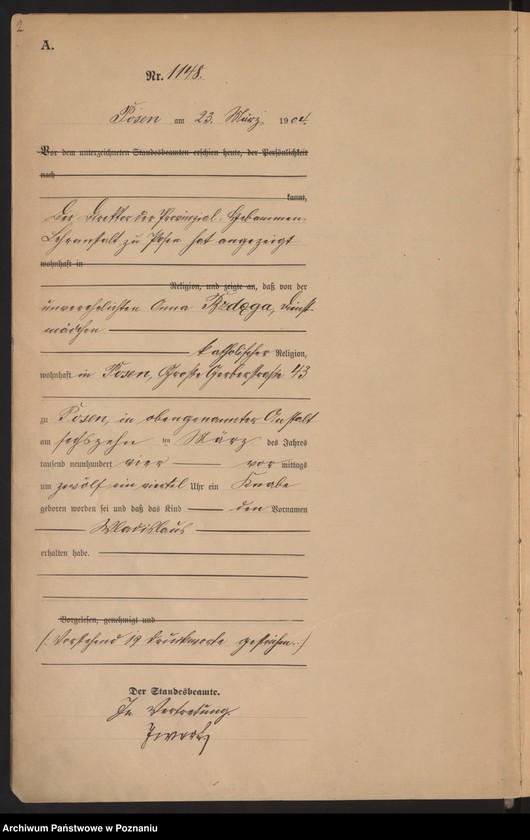 2
A.
Nr. 1148.
Posen am 23. März 1904.
Vor dem unterzeichneten Standesbeamten erschien heute, der Persönlichkeit
nach
kannt,
Der Direktor der Provinzial-Hebammen-
Lehranstalt zu Posen hat angezeigt
wohnhaft in
Religion, und zeigte an, daß von der
unverehelichten Anna Bzdęga, Dienst-
mädchen
katholischer Religion,
wohnhaft in Posen, Große Gerberstraße 43
zu Posen, in obengenannter Anstalt
am sechszehn ten März des Jahres
tausend neunhundert vier vor mittags
um zwölf ein viertel Uhr ein Knabe
geboren worden sei und daß das Kind den Vornamen
Wladislaus
erhalten habe.
Vorgelesen, genehmigt und
(Vorstehend 19 Druckworte gestrichen.)
Der Standesbeamte.
In Vertretung.
Archiwum Państwowe w Poznaniu